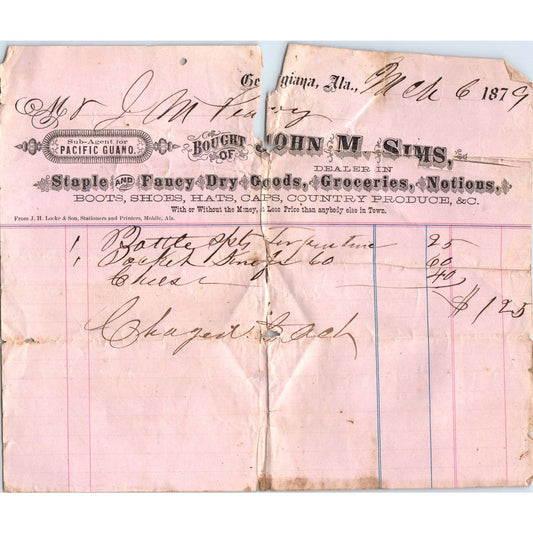 Georgiana, Ala., Mch 6 1879
Mr J M
Sub-Agent for
PACIFIC GUANO.
BOUGHT OF JOHN M. SIMS,
DEALER IN
Staple AND Fancy Dry Goods, Groceries, Notions,
BOOTS, SHOES, HATS, CAPS, COUNTRY PRODUCE, &C.
With or Without the Money, & Less Price than anybody else in Town.
From J. H. Locke & Son, Stationers and Printers, Mobile, Ala.
1 Bottle Spts turpentine 25
1 Pocket 60 60
Cheese 40
$ 1 25